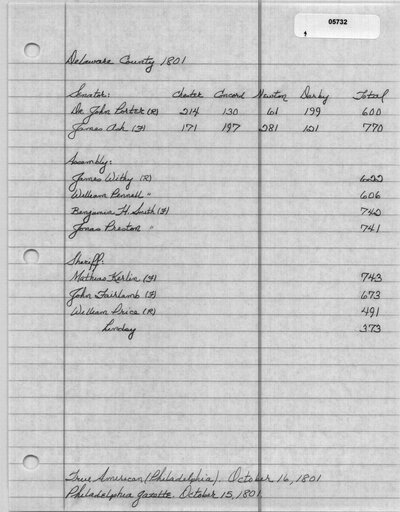 05732
Delaware County 1801
Senator: Chester Concord Newton Darby Total
Dr. John Porter (R) 214 130 61 199 600
James Ash (F) 171 197 281 121 770
Assembly:
James Withy (R) 622
William Pennell " 606
Benjamin H. Smith (F) 742
Jonas Preston " 741
Sheriff:
Mathias Kerlin (F) 743
John Fairlamb (F) 673
William Price (R) 491
Linday 373
True American (Philadelphia). October 16, 1801
Philadelphia Gazette. October 15, 1801.